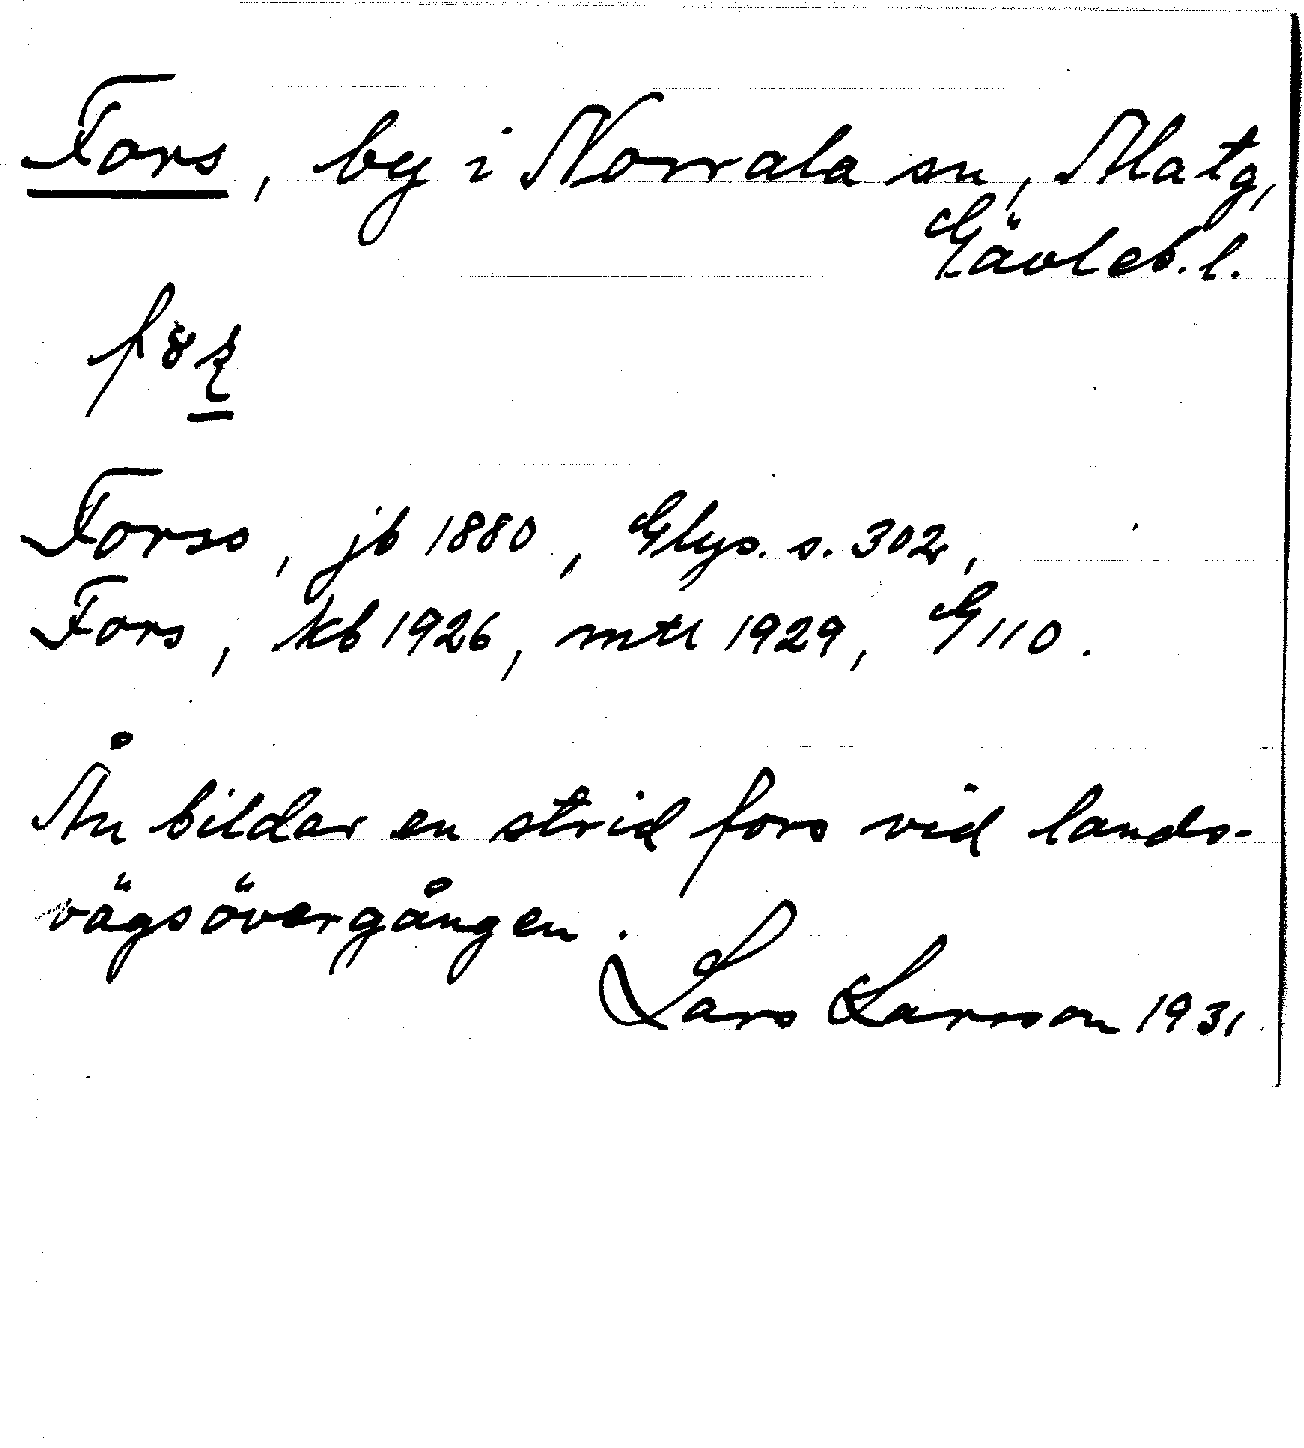 Fors, by i Norrala sn, Alatg,
Gävleb. l.
Forss, jb 1880, Glys. s. 302,
Fors, kb 1926, mtl 1929, G 110.
Ån bildar en strid fors vid lands-
vägsövergången.
Lars Larsson 1931